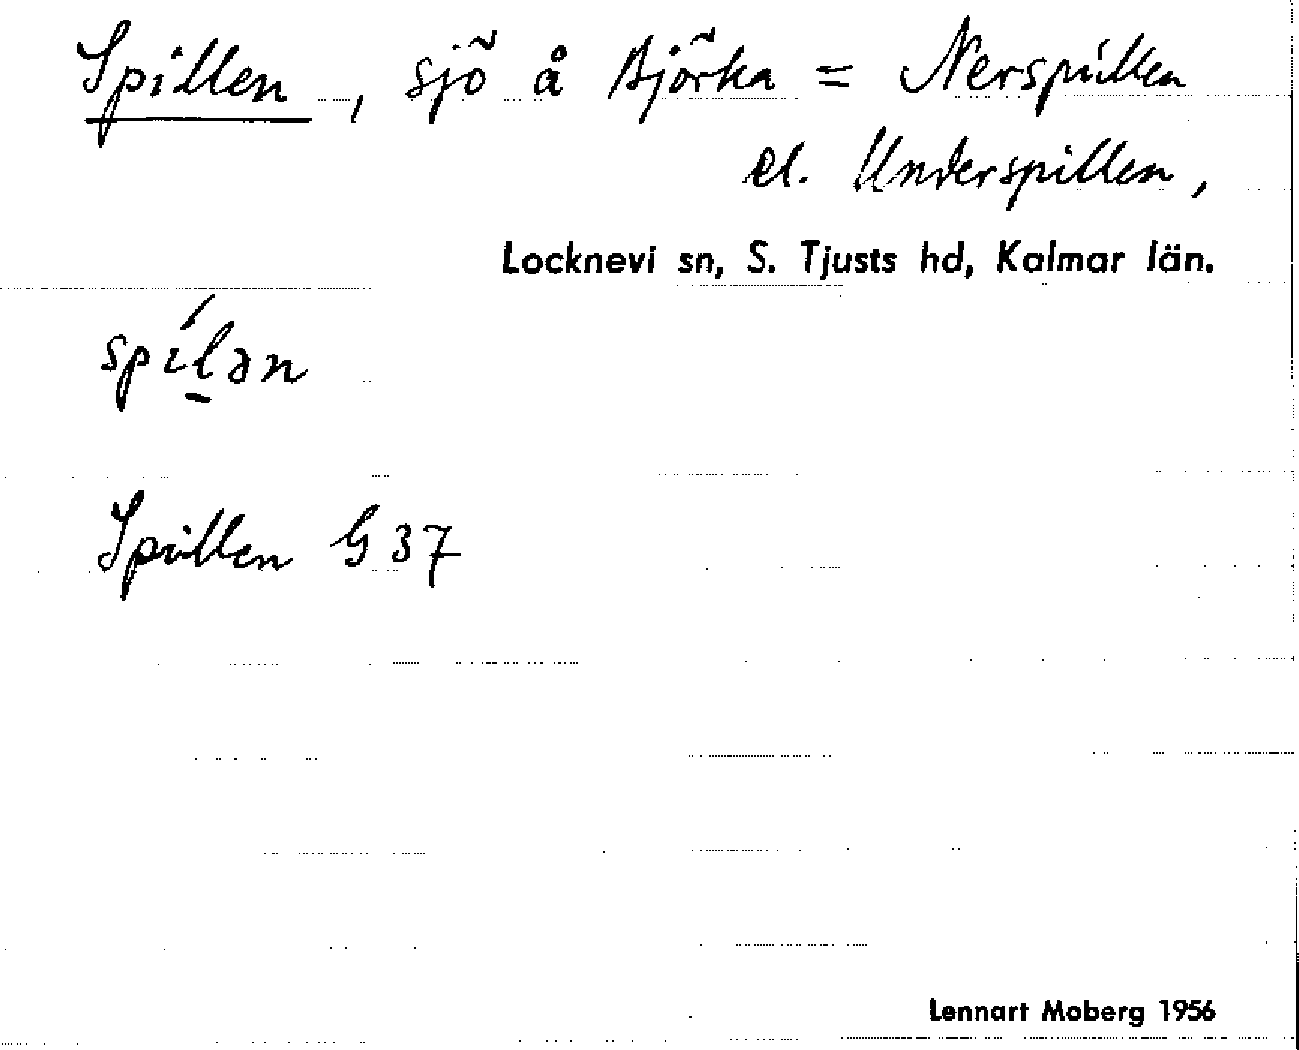 Spillen, sjö å Björka = Nerspillen
el. Underspillen,
Locknevi sn, S. Tjusts hd, Kalmar län.
spíl̠ən
Spillen G 37
Lennart Moberg 1956